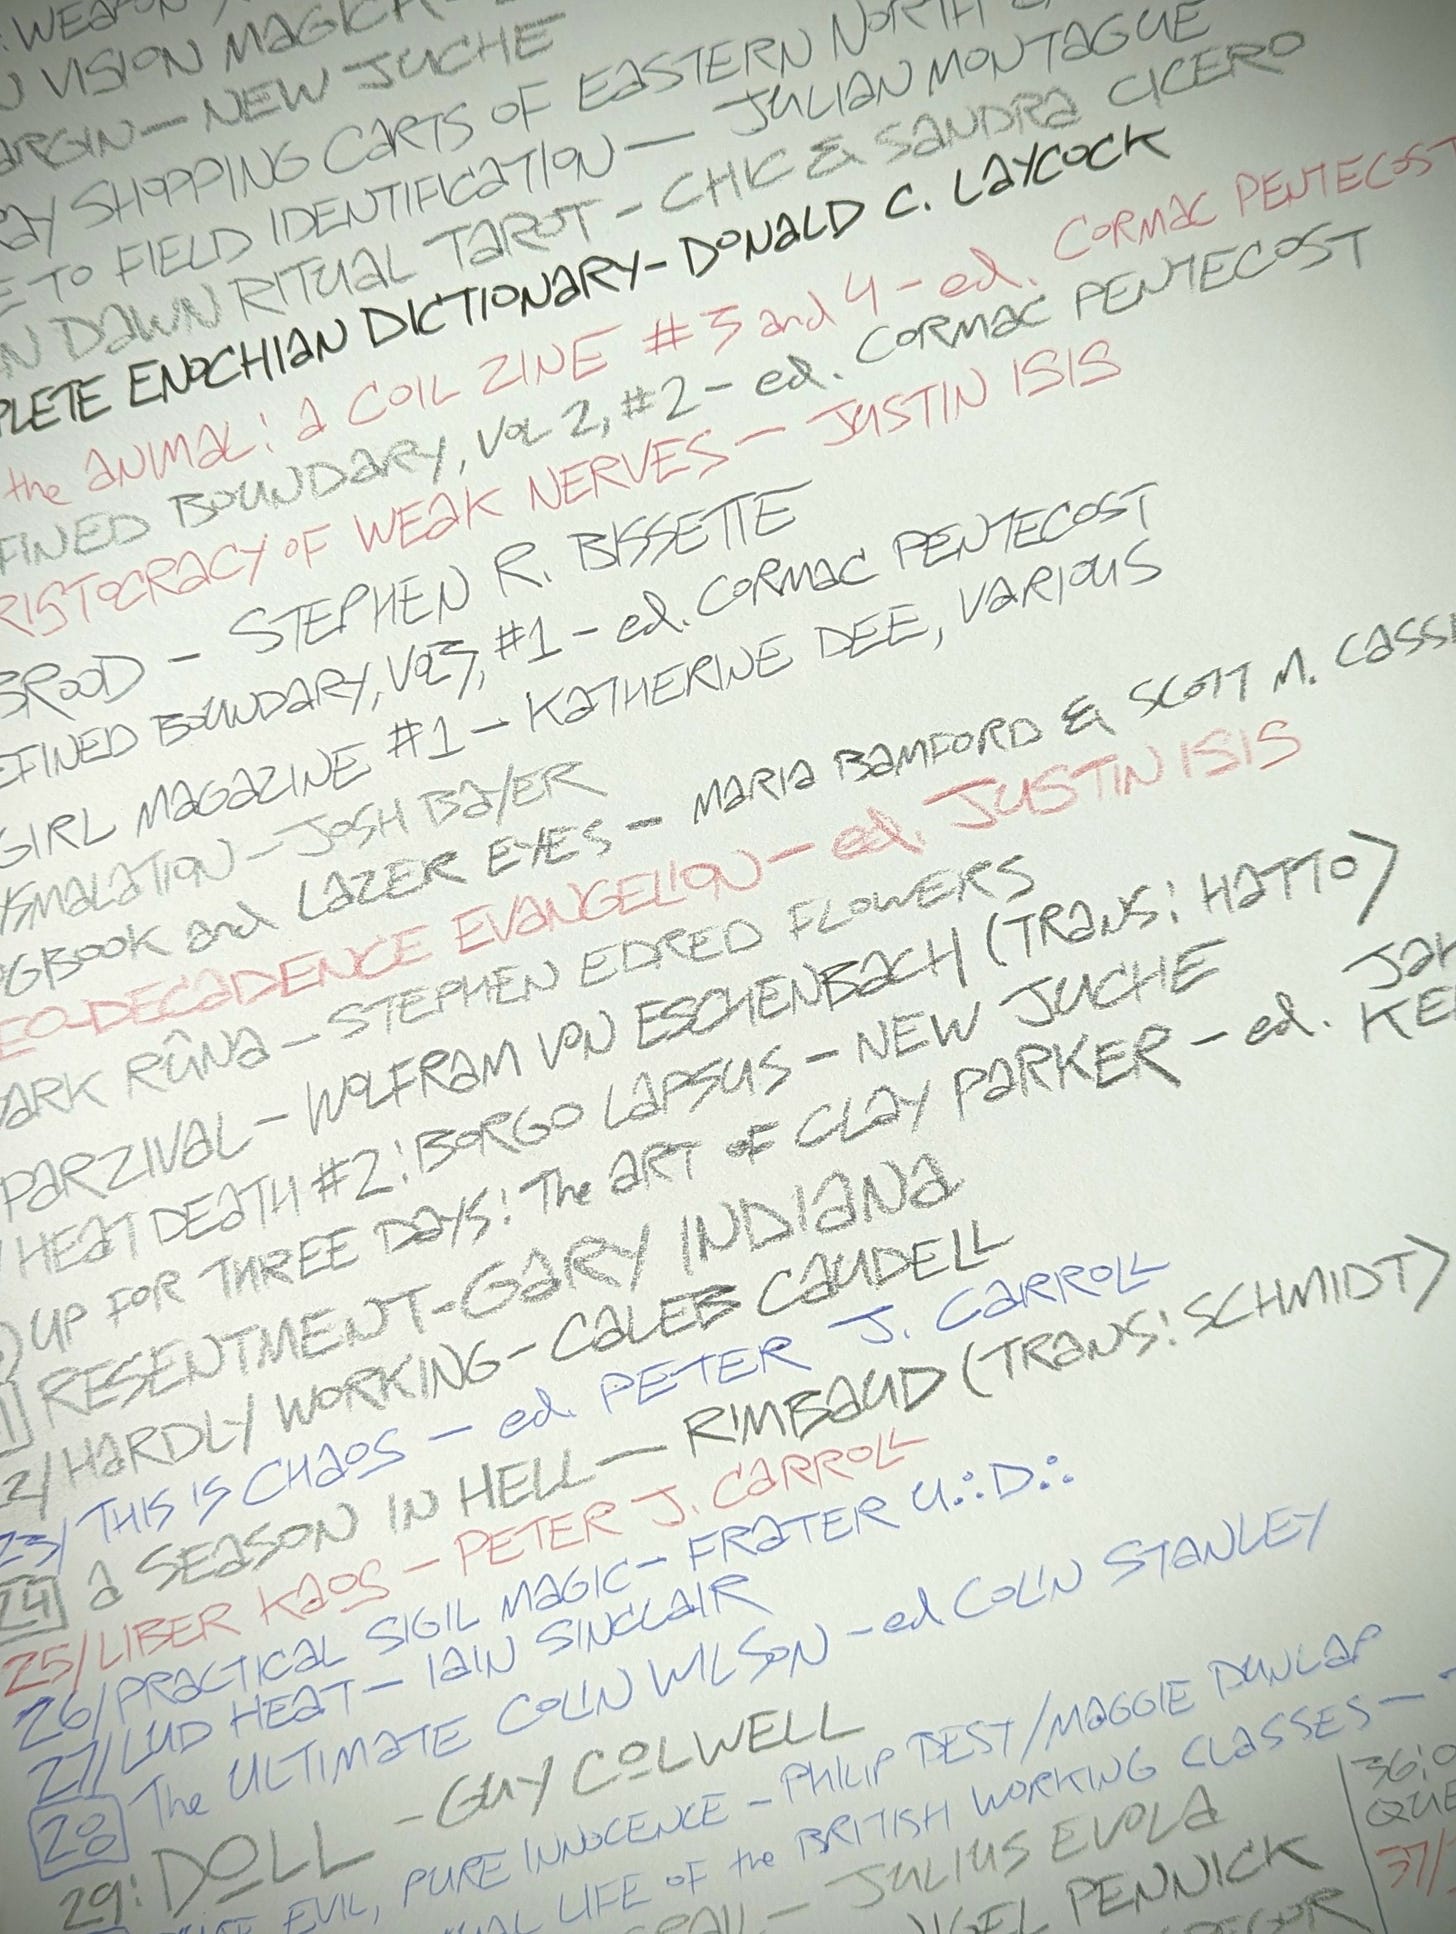 WEAPON
VISION MAGICK
ARGIN — NEW JUCHE
AY SHOPPING CARTS OF EASTERN NORTH
E TO FIELD IDENTIFICATION — JULIAN MONTAGUE
N DAWN RITUAL TAROT - CHIC & SANDRA CICERO
PLETE ENOCHIAN DICTIONARY - DONALD C. LAYCOCK
the ANIMAL: a COIL ZINE #3 and 4 - ed. CORMAC PENTECOST
FINED BOUNDARY, VOL 2, #2 - ed. CORMAC PENTECOST
RISTOCRACY OF WEAK NERVES — JUSTIN ISIS
BROOD - STEPHEN R. BISSETTE
EFINED BOUNDARY, VOL3, #1 - ed. CORMAC PENTECOST
GIRL MAGAZINE #1 - KATHERINE DEE, VARIOUS
YSMALATION - JOSH BAYER
OGBOOK and LAZER EYES - MARIA BAMFORD & SCOTT M. CASS
EO-DECADENCE EVANGELION - ed. JUSTIN ISIS
ARK RÛNA - STEPHEN EDRED FLOWERS
PARZIVAL - WOLFRAM VON ESCHENBACH (TRANS: HATTO)
HEAT DEATH #2: BORGO LAPSUS - NEW JUCHE
UP FOR THREE DAYS: The ART OF CLAY PARKER - ed.
RESENTMENT - GARY INDIANA
2/ HARDLY WORKING - CALEB CAUDELL
23/ THIS IS CHAOS - ed. PETER J. CARROLL
24 a SEASON IN HELL — RIMBAUD (TRANS: SCHMIDT)
25/ LIBER KAOS - PETER J. CARROLL
26/ PRACTICAL SIGIL MAGIC - FRATER U∴D∴
27/ LUD HEAT - IAIN SINCLAIR
28 The ULTIMATE COLIN WILSON - ed COLIN STANLEY
29: DOLL - GUY COLWELL
EVIL, PURE INNOCENCE - PHILIP BEST/MAGGIE DUNLAP
LIFE OF the BRITISH WORKING CLASSES -
- JULIUS EVOLA
PENNICK
36:
QUE
37/